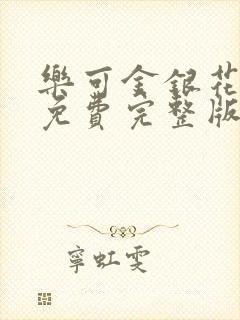 樂可金銀花
免費完整版
寧虹雯